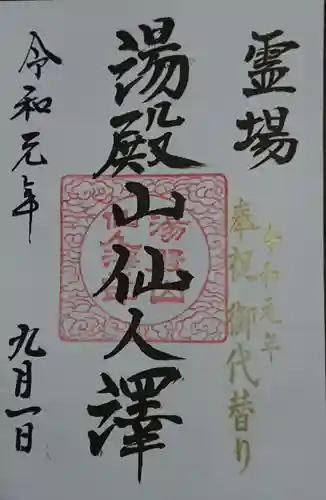 霊場
令和元年
奉祝御代替り
湯殿山仙人澤
令和元年
九月一日